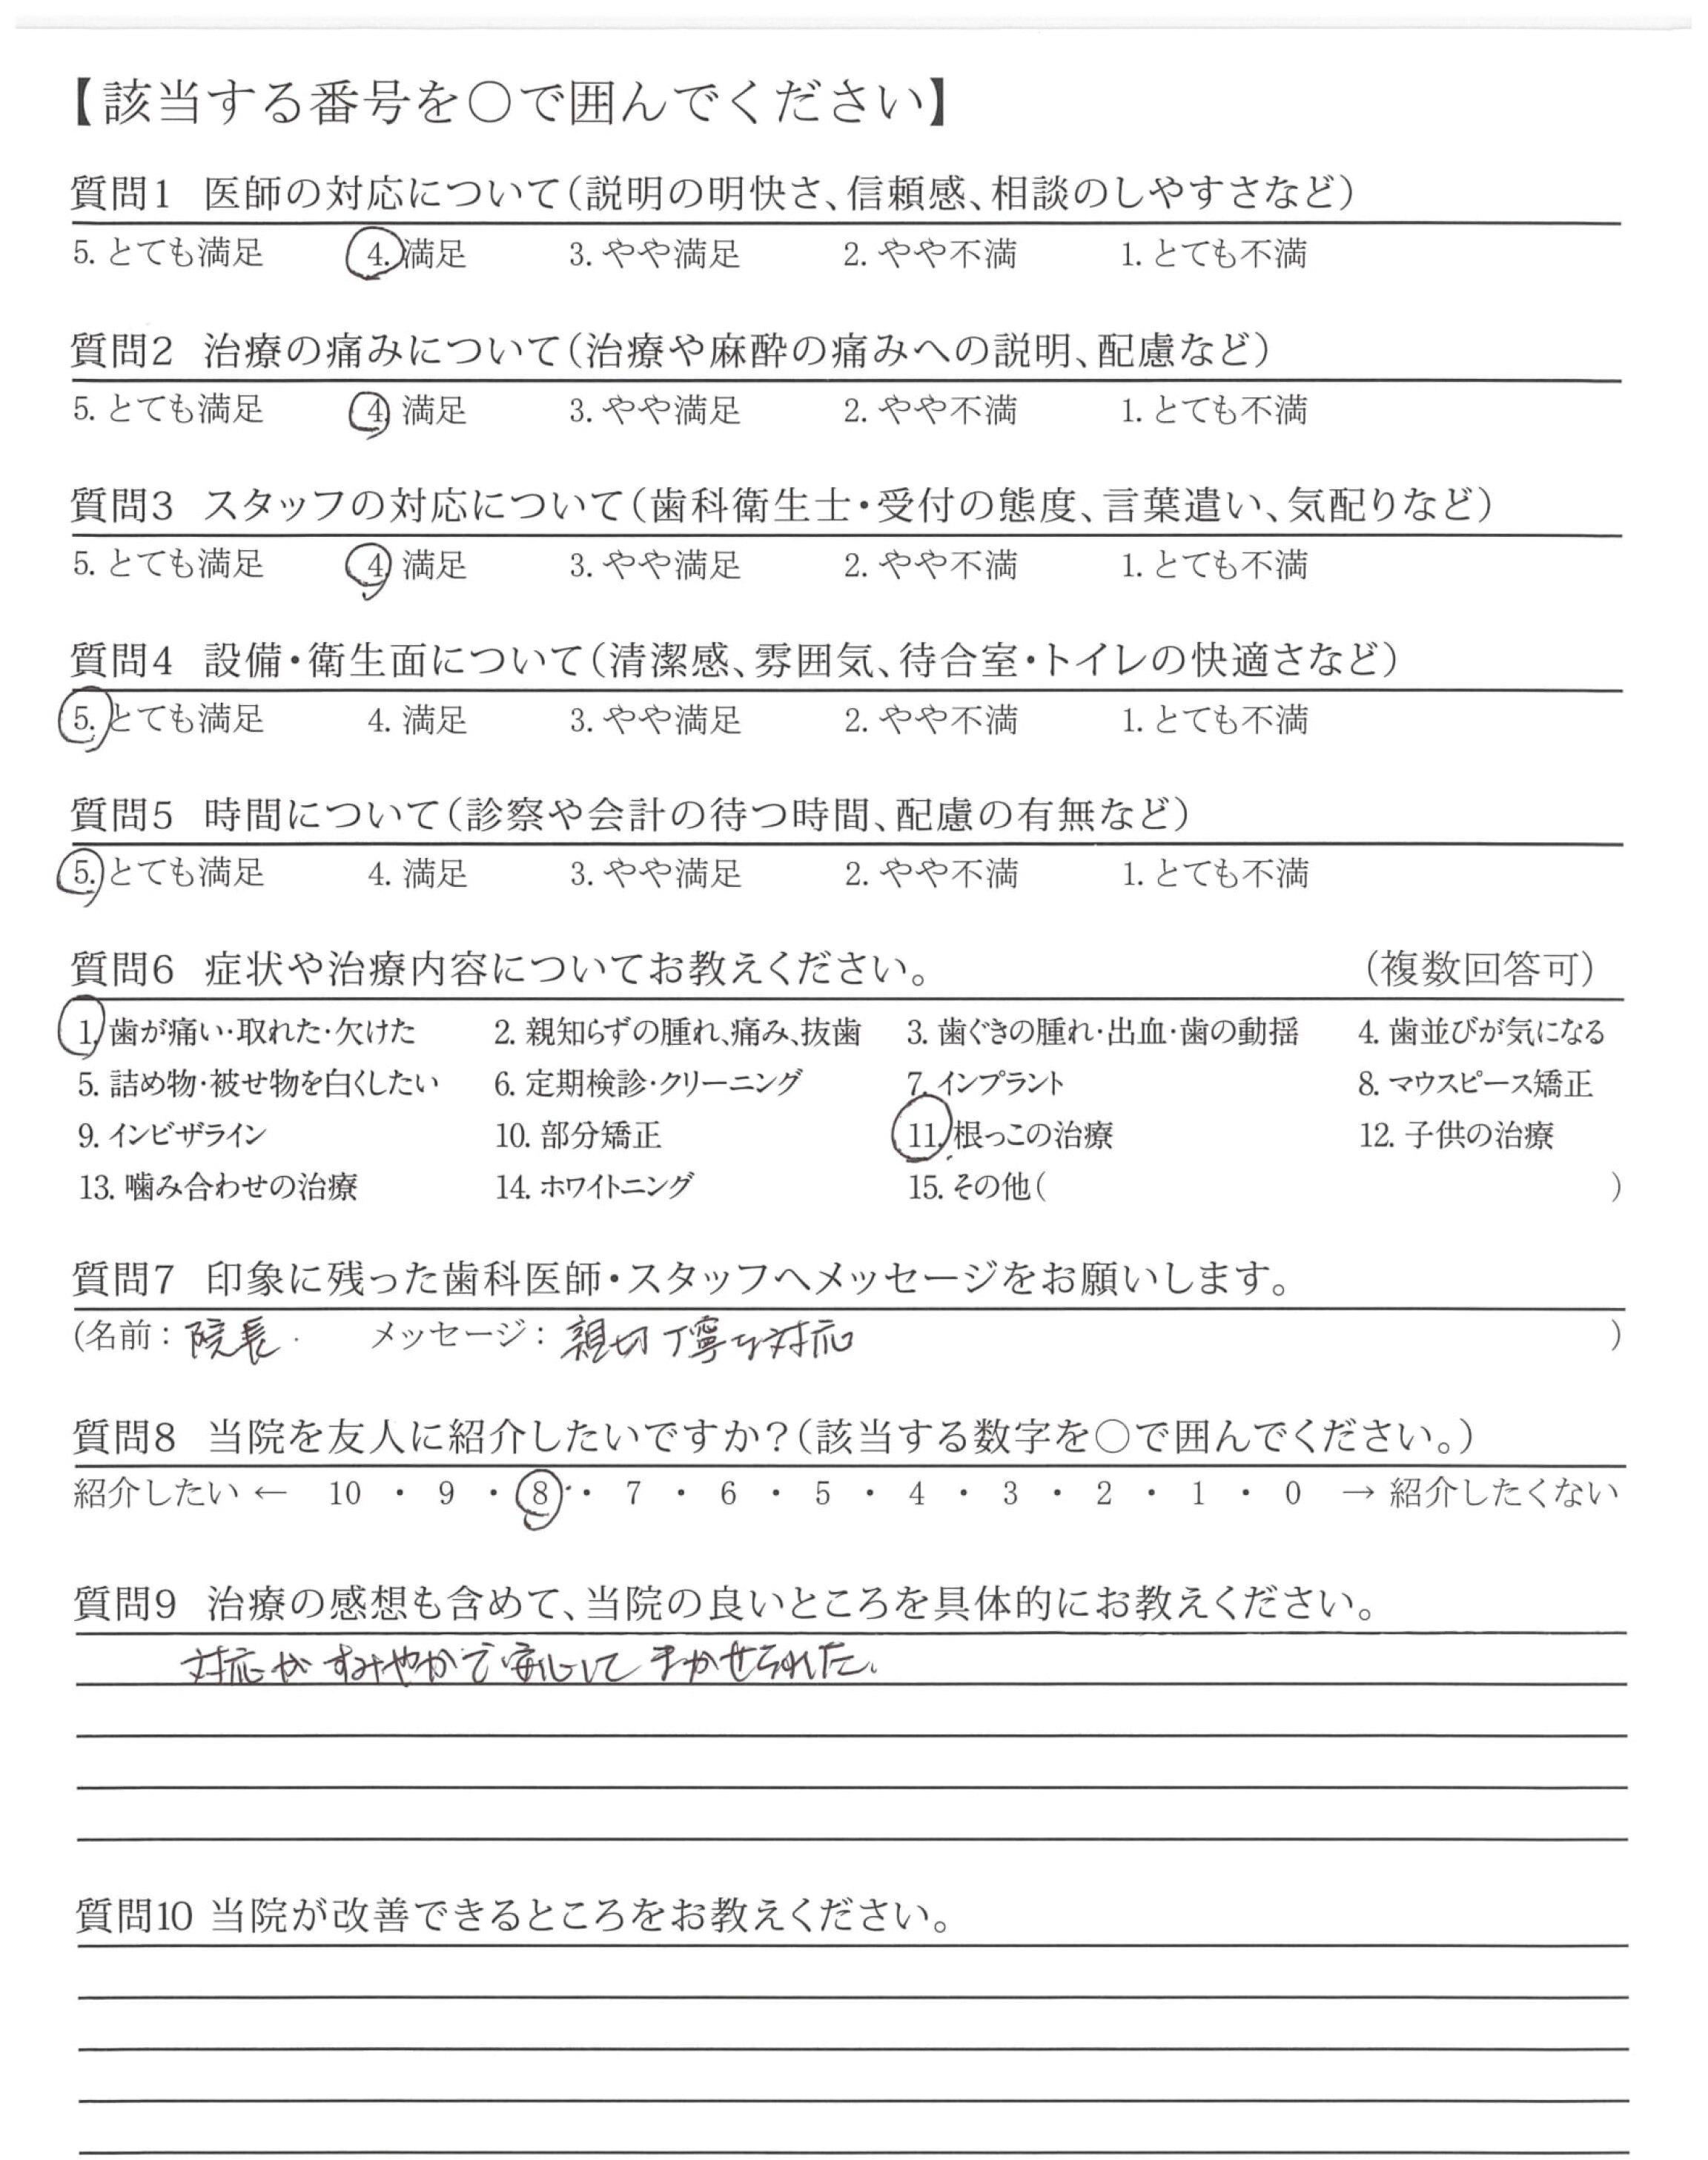 【該当する番号を〇で囲んでください】
質問1 医師の対応について(説明の明快さ、信頼感、相談のしやすさなど)
5. とても満足 4. 満足 3. やや満足 2. やや不満 1. とても不満
質問2 治療の痛みについて(治療や麻酔の痛みへの説明、配慮など)
5. とても満足 4. 満足 3. やや満足 2. やや不満 1. とても不満
質問3 スタッフの対応について(歯科衛生士・受付の態度、言葉遣い、気配りなど)
5. とても満足 4. 満足 3. やや満足 2. やや不満 1. とても不満
質問4 設備・衛生面について(清潔感、雰囲気、待合室・トイレの快適さなど)
5. とても満足 4. 満足 3. やや満足 2. やや不満 1. とても不満
質問5 時間について(診察や会計の待つ時間、配慮の有無など)
5. とても満足 4. 満足 3. やや満足 2. やや不満 1. とても不満
質問6 症状や治療内容についてお教えください。 (複数回答可)
1. 歯が痛い・取れた・欠けた 2. 親知らずの腫れ、痛み、抜歯 3. 歯ぐきの腫れ・出血・歯の動揺 4. 歯並びが気になる
5. 詰め物・被せ物を白くしたい 6. 定期検診・クリーニング 7. インプラント 8. マウスピース矯正
9. インビザライン 10. 部分矯正 11. 根っこの治療 12. 子供の治療
13. 噛み合わせの治療 14. ホワイトニング 15. その他( )
質問7 印象に残った歯科医師・スタッフへメッセージをお願いします。
(名前：院長 メッセージ：親切丁寧な対応 )
質問8 当院を友人に紹介したいですか？(該当する数字を〇で囲んでください。)
紹介したい ← 10 ・ 9 ・ 8 ・ 7 ・ 6 ・ 5 ・ 4 ・ 3 ・ 2 ・ 1 ・ 0 → 紹介したくない
質問9 治療の感想も含めて、当院の良いところを具体的にお教えください。
対応がすみやかで安心してまかせられた。
質問10 当院が改善できるところをお教えください。